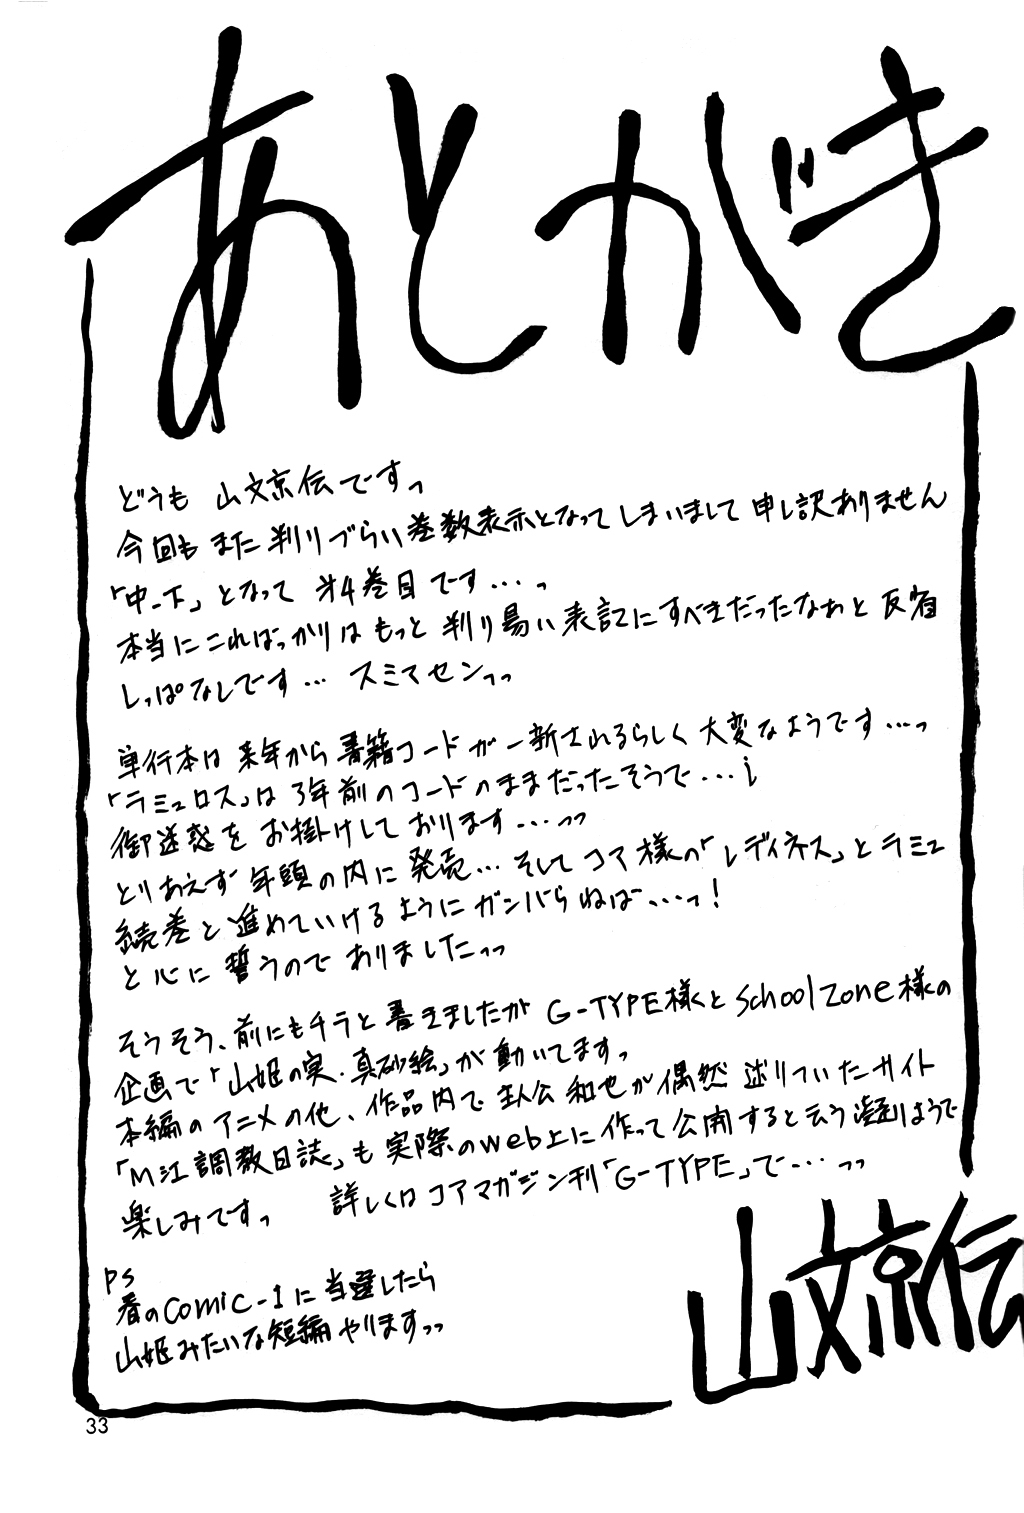 あとがき
どうも 山文京伝ですっ
今回も また 判りづらい巻数表示となってしまいまして 申し訳ありません
「中-下」となって 才4巻目です…っ
本当に こればっかりは もっと 判り易い 表記にすべきだったなぁと 反省
しっぱなしです… スミマセンっっ
単行本は 来年から 書籍コードが一新されるらしく 大変なようです…っ
「ラミュロス」は 3年前のコードのままだったそうで…
御迷惑を お掛けしております…っっ
とりあえず 年頭の内に 発売… そして コア様の「レディネス」と ラミュ
続巻と 進めていけるように ガンバらねば…っ!
と心に 誓うので ありましたっっ
そうそう、前にもチラと 書きましたが G-TYPE様と schoolzone様の
企画で「山姫の実・真砂絵」が 動いてますっ
本編の アニメの他、作品内で 主人公 和也が 偶然 辿りついたサイト
「M江調教日誌」も 実際のweb上に 作って 公開すると云う 凝りようで
楽しみですっ 詳しくは コアマガジン刊「G-TYPE」で…っっ
PS
春のComic-1に 当選したら
山姫みたいな短編 やりますっっ
山文京伝
33